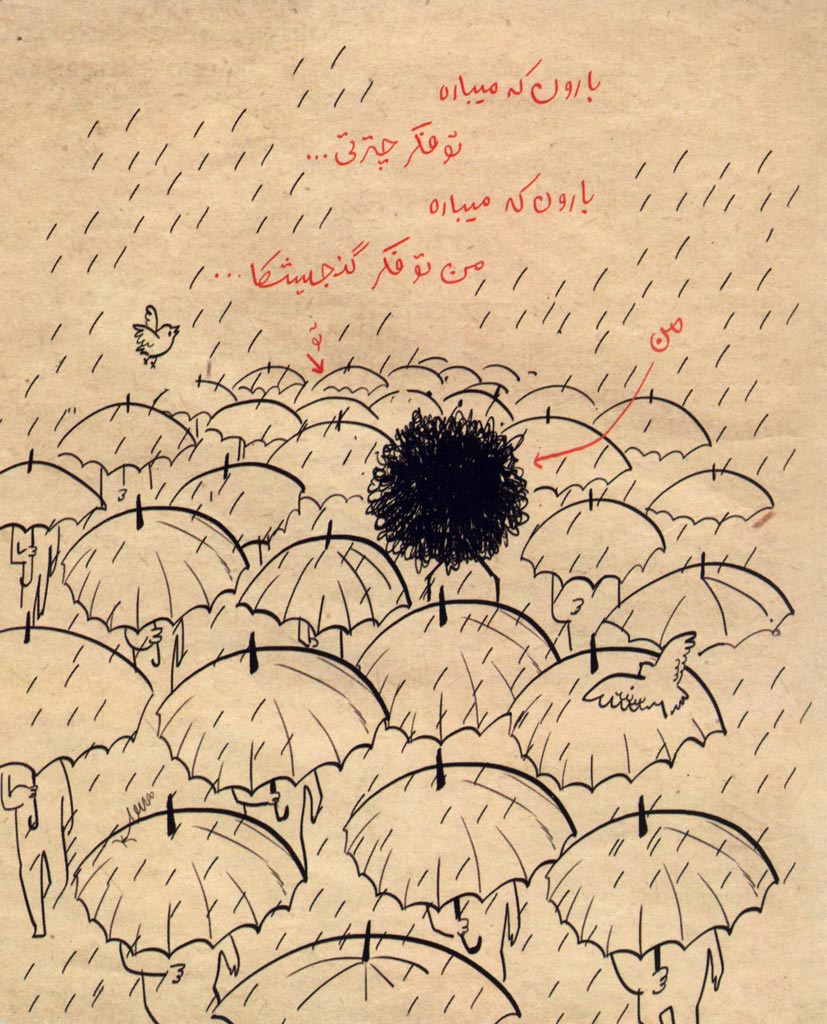 بارون که میباره
تو فکر چترتی...
بارون که میباره
من تو فکر گنجیشکا...
تو
من